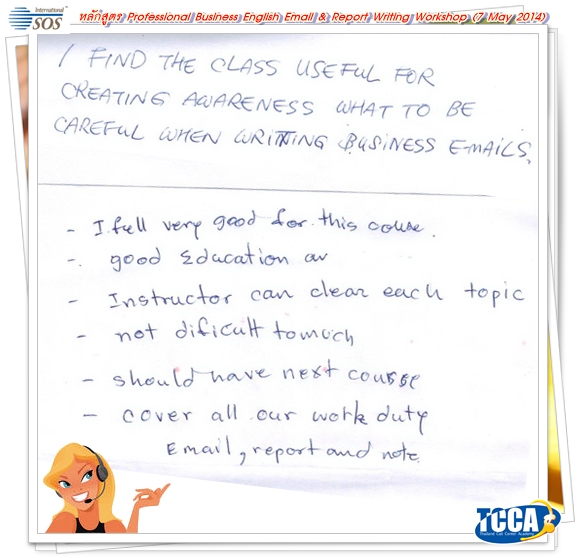 International
SOS
หลักสูตร Professional Business English Email & Report Writing Workshop (7 May 2014)
I FIND THE CLASS USEFUL FOR
CREATING AWARENESS WHAT TO BE
CAREFUL WHEN WRITTING BUSINESS E-MAILS.
- I fell very good for this couse.
- good Education
- Instructor can clear each topic
- not dificult tomuch
- should have next course
- cover all our work duty
Email, report and note.
TCCA
Thailand Call Center Academy